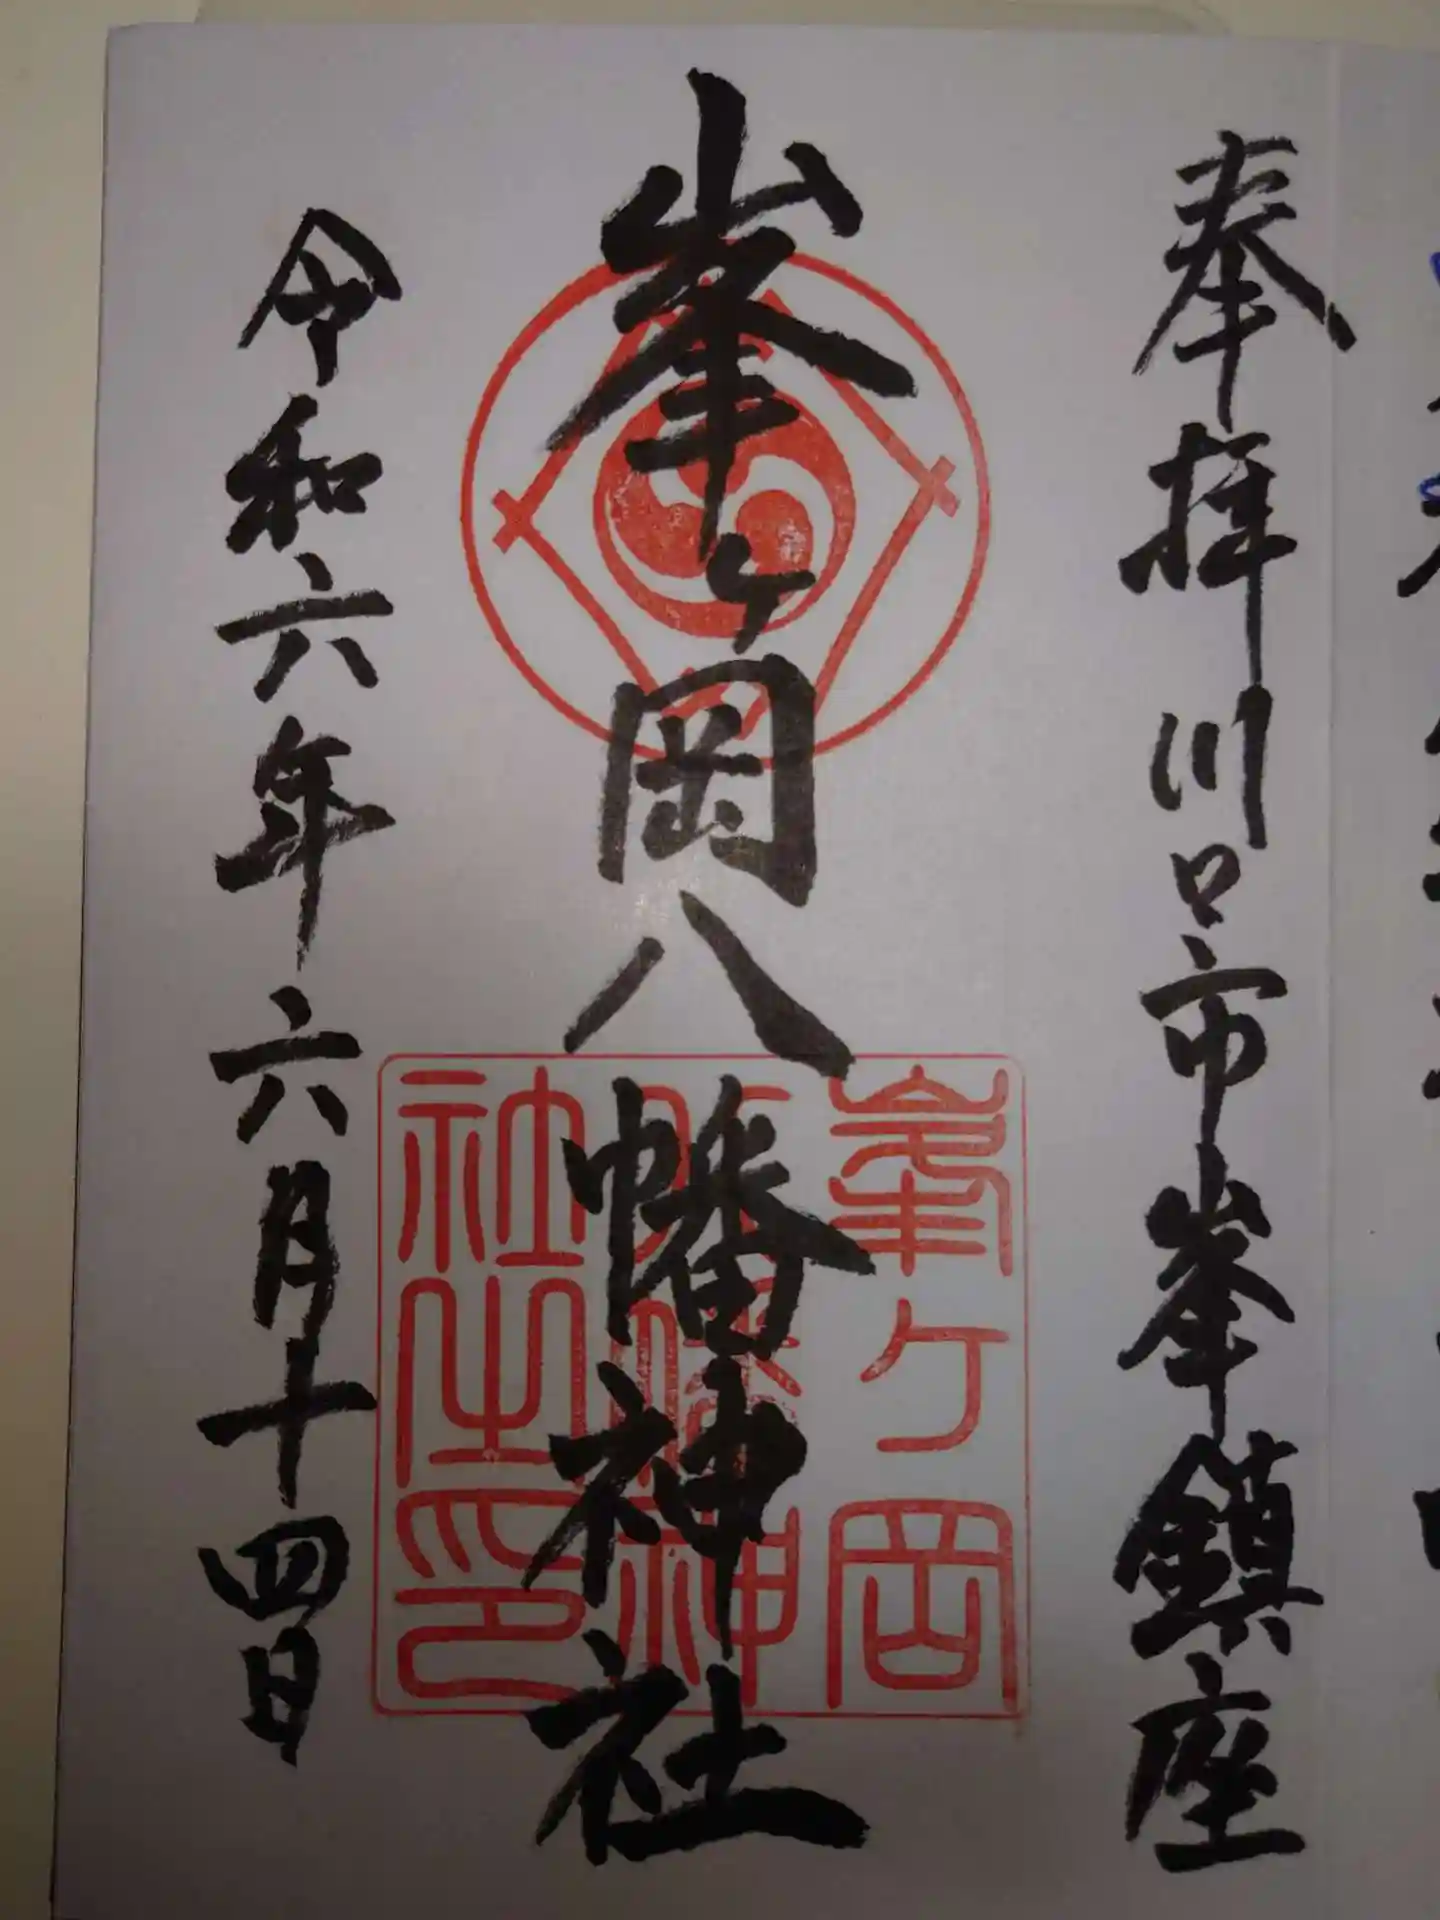 奉拝川口市峯鎮座
峯ヶ岡八幡神社
令和六年六月十四日
峯ヶ岡
八幡神
社之印